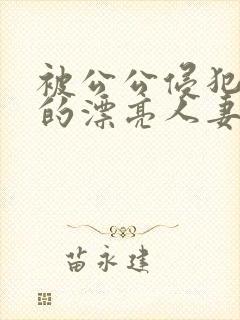 被公公侵犯
的漂亮人妻
苗永建